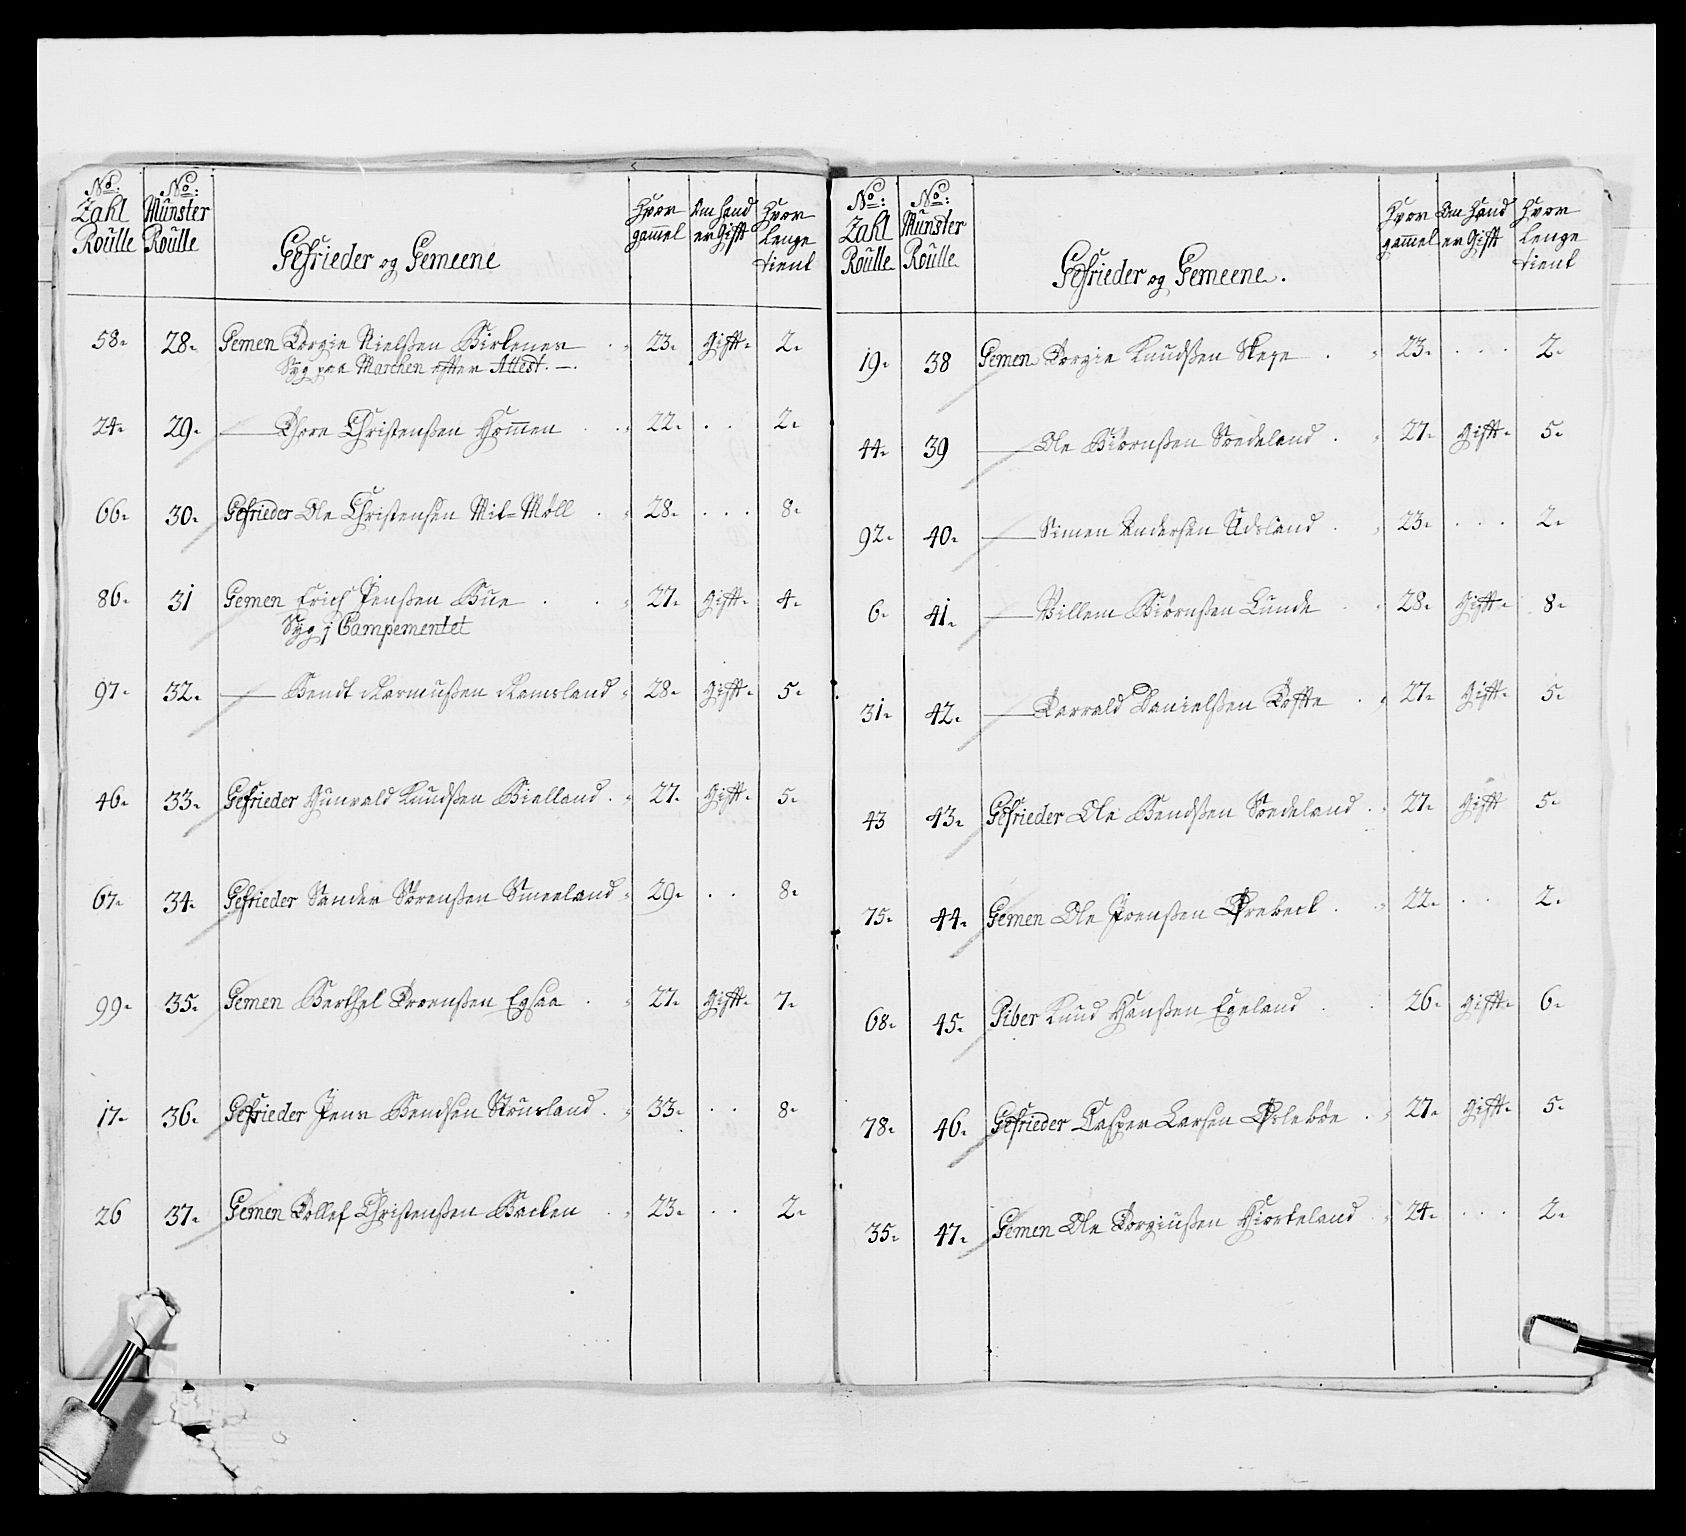 No: Zahl Roulle
No: Munster Roulle
Gefrieder og Gemeene
Hvor gammel
Om hand er Gift
Hvor lenge tient
58. 28. Gemen Torgie Nielsßen Birkenes 23. Gift. 2.
Syg paa Marchen efter Attest.
24. 29. Thore Christensßen Hommen 22. . . 2.
66. 30. Gefrieder Ole Christensen Mit-Moll 28. . . . 8.
86. 31 Gemen Erich Jensßen Bue 27. Gift. 4.
Syg j Campementet
97. 32. Bendt Rasmusßen Ramsland 28. Gift. 5.
46. 33. Gefrieder Gunvald Knudsßen Bielland 27. Gift. 5.
67. 34. Gefrieder Sander Sörensßen Smeeland 29. . . 8.
99. 35. Gemen Berthel Troensßen Egsaa 27. Gift. 7.
17. 36. Gefrieder Jens Bendsen Stousland 33. . . 8.
26 37. Gemen Tollef Christensßen Backen 23. . . 2.
No: Zahl Roulle
No: Munster Roulle
Gefrieder og Gemeene.
Hvor gammel
Om Hand er Gift
Hvor lenge tient
19. 38 Gemen Torgie Knudsßen Skeye 23. . . . 2.
44. 39 Ole Biörnsßen Soedeland 27. Gift. 5.
92. 40. Simen Andersen Udsland 23. . . . 2.
6. 41. Villem Biörnsßen Lunde 28. Gift. 8.
31. 42. Tarvald Danielsßen Tofte 27. Gift. 5.
43 43. Gefrieder Ole Bendsßen Soedeland 27. Gift 5.
75. 44. Gemen Ole Joensßen Ørebeck 22. . . 2.
68. 45. Piber Knud Hansßen Egeland 26. Gift. 6.
78. 46. Gefrieder Casper Larsen Øslebøe 27. Gift. 5.
35. 47. Gemen Ole Torgiusßen Hiorteland 24. . . . 2.